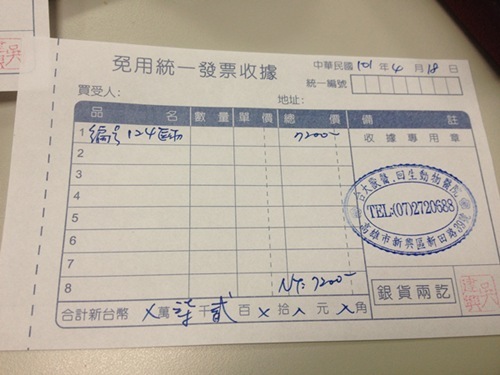 免用統一發票收據
中華民國 101 年 4 月 18 日
統一編號
買受人：
地址：
品名 數量 單價 總價 備註
1 編號124 7200-
收據專用章
2
3
4
5
6
7
8 NT: 7200-
台大獸醫.回生動物醫院
TEL:(07)2720688
高雄市新興區新田路29號
銀貨兩訖
合計新台幣 X 萬 柒 千 貳 百 X 拾 X 元 X 角